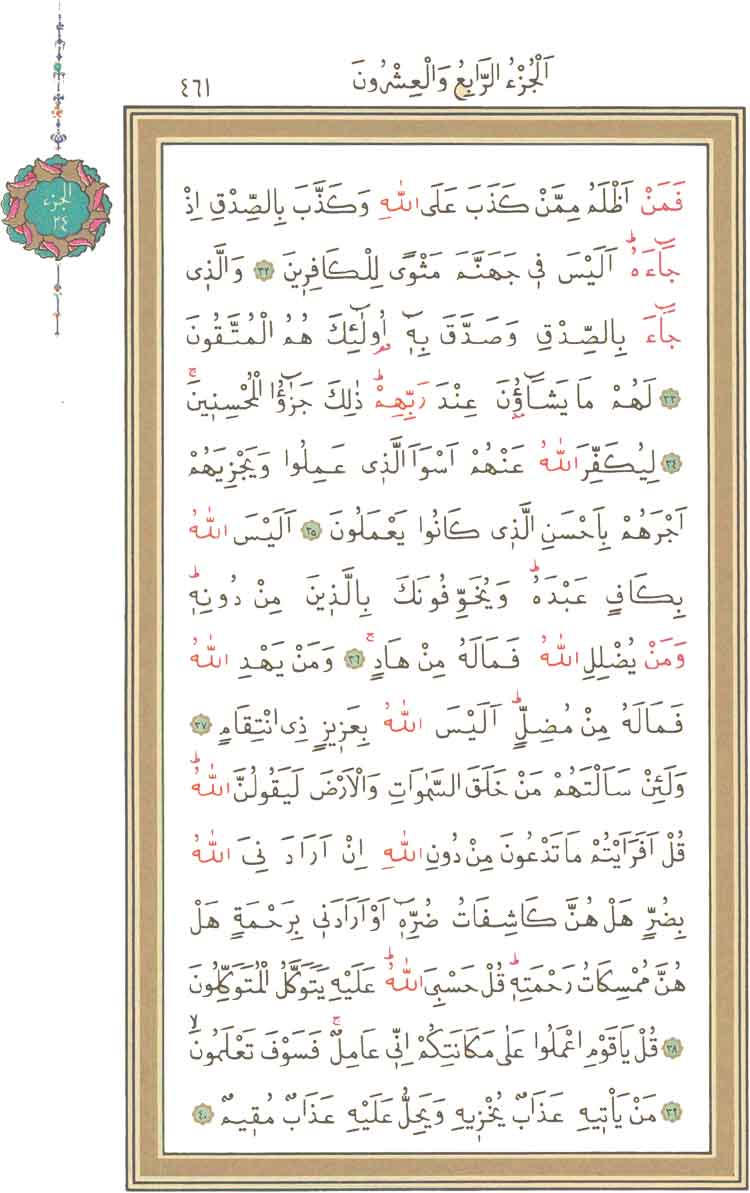 اَلْجُزْءُ الرَّابِعُ وَالْعِشْرُونَ
٤٦١
الجزء
٢٤
فَمَنْ اَظْلَمُ مِمَّنْ كَذَبَ عَلَى اللّٰهِ وَكَذَّبَ بِالصِّدْقِ اِذْ
جَٓاءَهُۜ اَلَيْسَ ف۪ي جَهَنَّمَ مَثْوًى لِلْكَافِر۪ينَ ٣٢ وَالَّذ۪ي
جَٓاءَ بِالصِّدْقِ وَصَدَّقَ بِه۪ٓ اُو۬لٰٓئِكَ هُمُ الْمُتَّقُونَ
٣٣ لَهُمْ مَا يَشَٓاؤُ۫نَ عِنْدَ رَبِّهِمْۜ ذٰلِكَ جَزٰٓؤُا الْمُحْسِن۪ينَۚ
٣٤ لِيُكَفِّرَ اللّٰهُ عَنْهُمْ اَسْوَاَ الَّذ۪ي عَمِلُوا وَيَجْزِيَهُمْ
اَجْرَهُمْ بِاَحْسَنِ الَّذ۪ي كَانُوا يَعْمَلُونَ ٣٥ اَلَيْسَ اللّٰهُ
بِكَافٍ عَبْدَهُۜ وَيُخَوِّفُونَكَ بِالَّذ۪ينَ مِنْ دُونِه۪ۜ
وَمَنْ يُضْلِلِ اللّٰهُ فَمَالَهُ مِنْ هَادٍۚ ٣٦ وَمَنْ يَهْدِ اللّٰهُ
فَمَالَهُ مِنْ مُضِلٍّۜ اَلَيْسَ اللّٰهُ بِعَز۪يزٍ ذِي انْتِقَامٍ ٣٧
وَلَئِنْ سَاَلْتَهُمْ مَنْ خَلَقَ السَّمٰوَاتِ وَالْاَرْضَ لَيَقُولُنَّ اللّٰهُۜ
قُلْ اَفَرَاَيْتُمْ مَا تَدْعُونَ مِنْ دُونِ اللّٰهِ اِنْ اَرَادَ نِيَ اللّٰهُ
بِضُرٍّ هَلْ هُنَّ كَاشِفَاتُ ضُرِّه۪ٓ اَوْ اَرَادَن۪ي بِرَحْمَةٍ هَلْ
هُنَّ مُمْسِكَاتُ رَحْمَتِه۪ۜ قُلْ حَسْبِيَ اللّٰهُۜ عَلَيْهِ يَتَوَكَّلُ الْمُتَوَكِّلُونَ
٣٨ قُلْ يَا قَوْمِ اعْمَلُوا عَلٰى مَكَانَتِكُمْ اِنّ۪ي عَامِلٌۚ فَسَوْفَ تَعْلَمُونَۙ
٣٩ مَنْ يَأْت۪يهِ عَذَابٌ يُخْز۪يهِ وَيَحِلُّ عَلَيْهِ عَذَابٌ مُق۪يمٌ ٤٠